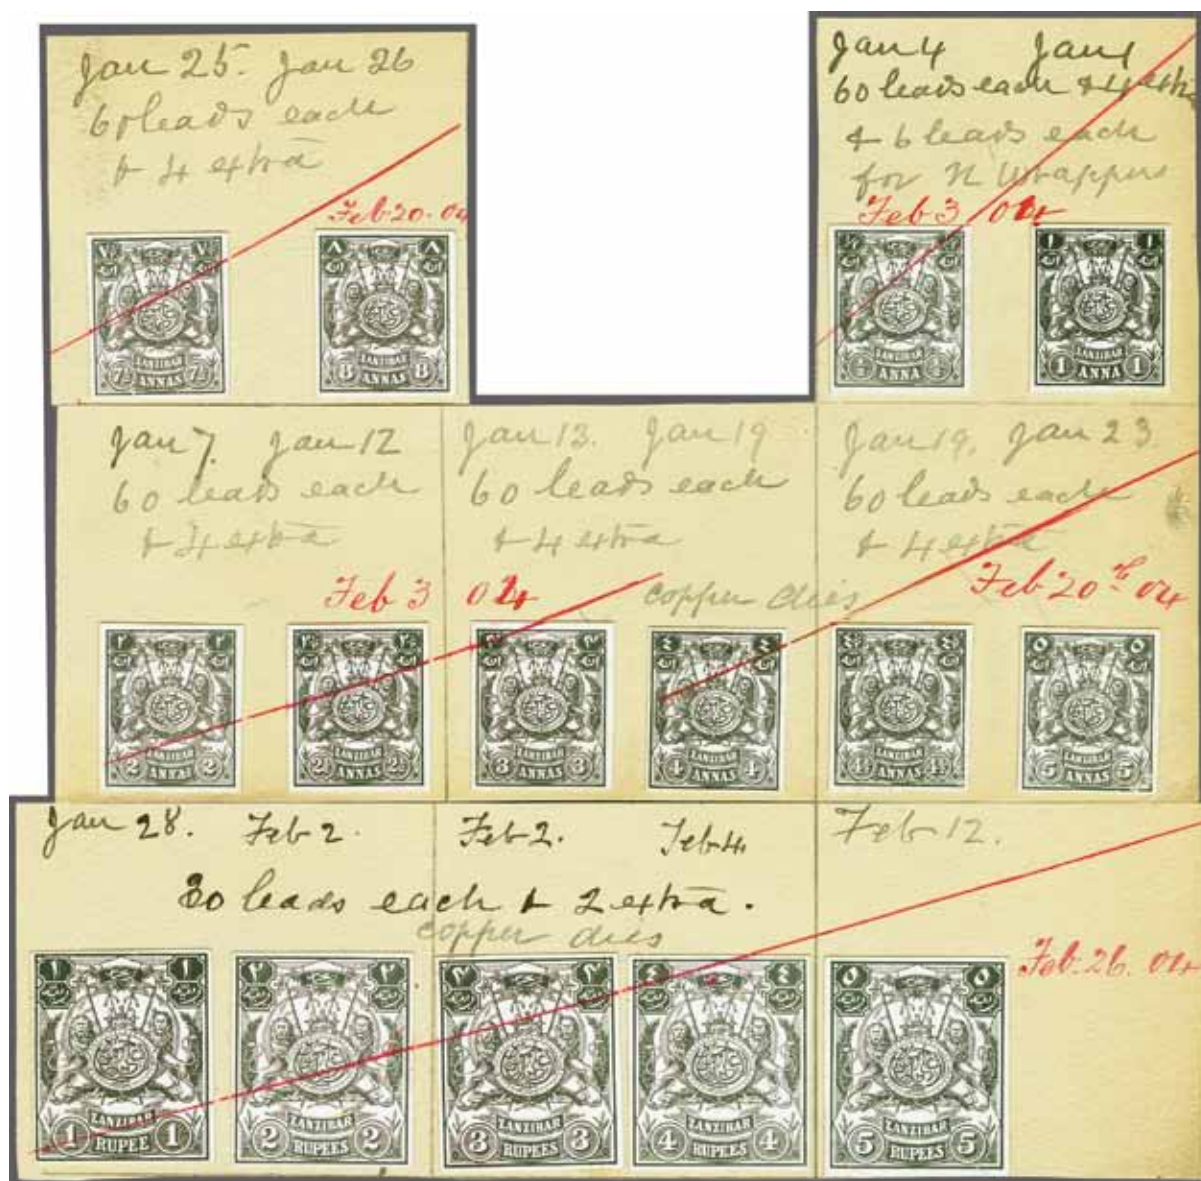 Jan 25. Jan 26
60 leads each
& 4 extra
Feb 20. 04
٧½ ٧½
٨ ٨
ZANZIBAR
7½ ANNAS 7½
ZANZIBAR
8 ANNAS 8
Jan 4 Jan
60 leads each & 4
& 6 leads each
for N Wrappers
Feb 3 04
١ ١
ZANZIBAR
½ ANNA ½
ZANZIBAR
1 ANNA 1
Jan 7. Jan 12
60 leads each
& 4 extra
Feb 3 04
٢ ٢
٢½ ٢½
ZANZIBAR
2 ANNAS 2
ZANZIBAR
2½ ANNAS 2½
Jan 13. Jan 19
60 leads each
& 4 extra
copper dies
٣ ٣
٤ ٤
ZANZIBAR
3 ANNAS 3
ZANZIBAR
4 ANNAS 4
Jan 19. Jan 23
60 leads each
& 4 extra
Feb 20th 04
٤½ ٤½
٥ ٥
ZANZIBAR
4½ ANNAS 4½
ZANZIBAR
5 ANNAS 5
Jan 28. Feb 2. Feb 2. Feb 4 Feb 12.
30 leads each & 2 extra.
copper dies
Feb. 26. 04
١ ١
٢ ٢
٣ ٣
٤ ٤
٥ ٥
ZANZIBAR
1 RUPEE 1
ZANZIBAR
2 RUPEES 2
ZANZIBAR
3 RUPEES 3
ZANZIBAR
4 RUPEES 4
ZANZIBAR
5 RUPEES 5